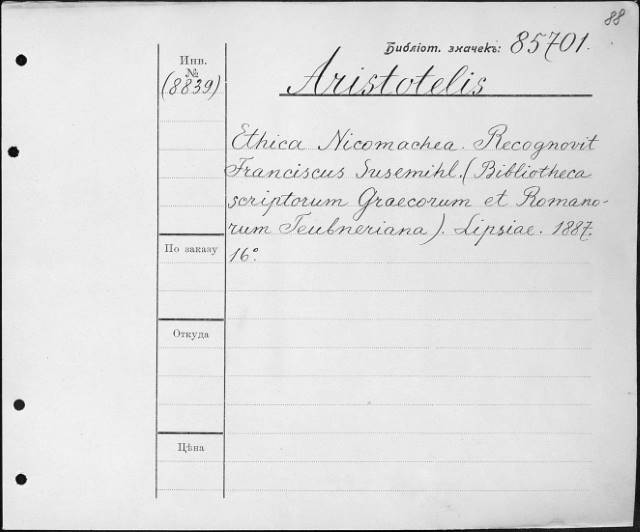 88
Библіот. значекъ: 85701.
Инв.
№
(8839)
Aristotelis
Ethica Nicomachea. Recognovit
Franciscus Susemihl. (Bibliotheca
scriptorum Graecorum et Romano-
rum Teubneriana). Lipsiae. 1887.
По заказу
16°.
Откуда
Цѣна